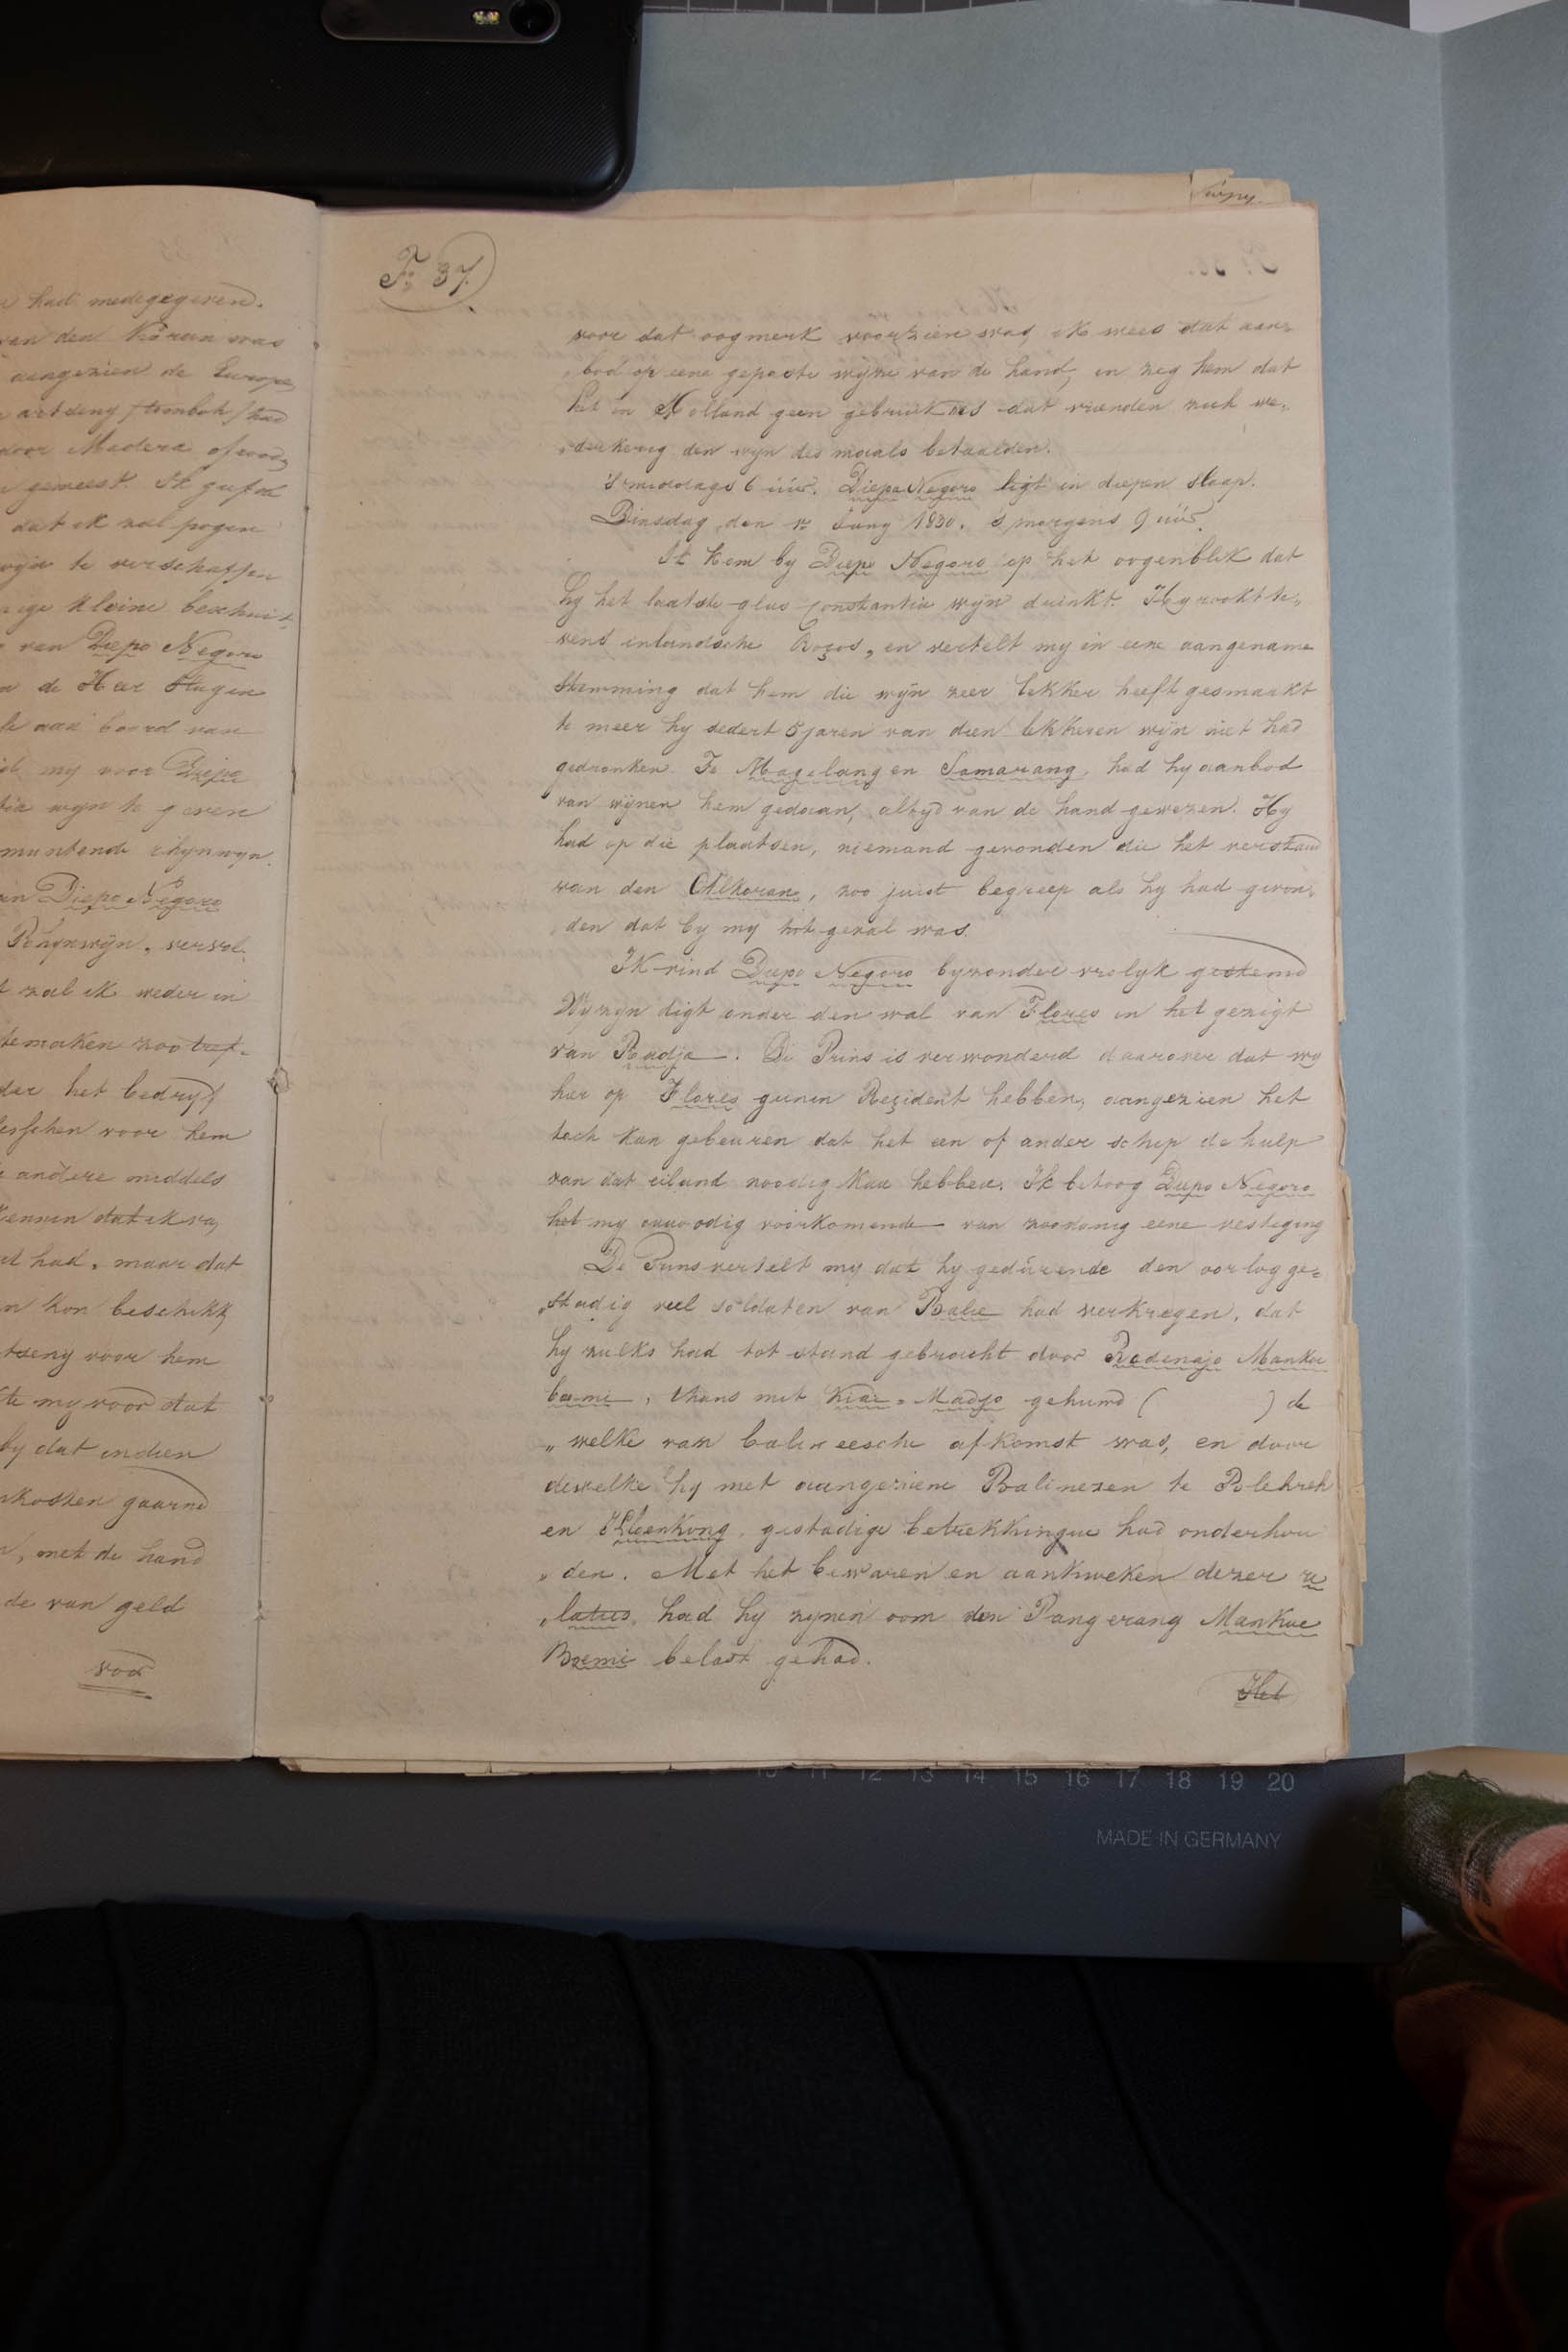 had medegegeven.
van den Koran was
aangezien de Europe,
artseny /tombok/ had
door Madera of roo,
geweest. Ik gaf
dat ik zal pogen
wijn te verschaffen
ige kleine beschuit-
van Diepo Negoro
de Heer Stugen
aan boord van
my voor Diepo
tia wyn te geven
muntende rhynwyn.
an Diepo Negoro
Rhynwyn, vervol.
zal ik weder in
te maken zoo tref-
der het bedryf
flesschen voor hem
andere middels
kennen dat ik va,
had, maar dat
kon beschikk,
tseny voor hem
te my voor dat
by dat indien
nkosten gaarne
, met de hand
de van geld
voor
Fo 37.
voor dat oogmerk voorzien was, ik wees dat aan,
„bod op eene gepaste wijze van de hand, en zeg hem dat
het in Holland geen gebruik is dat vrienden zich we,
„derkerig den wyn des maals betaalden.
's middags 6 üür. Diepo Negoro ligt in diepen slaap.
Dinsdag den 1e Juny 1830. 's morgens 9 üür.
Ik kom by Diepo Negoro op het oogenblik dat
hy het laatste glas Constantia wijn drinkt. Hy rookt te,
vens inlandsche Rocos, en vertelt my in eene aangename
stemming dat hem die wyn zeer lekker heeft gesmaakt
te meer hy sedert 5 jaren van dien lekkeren wijn niet had
gedronken. Te Magelang en Samarang, had hy aanbod
van wijnen hem gedaan, altyd van de hand gewezen. Hy
had op die plaatsen, niemand gevonden die het verstand
van den Alkoran, zoo juist begreep als hy had gevon,
den dat by my het geval was.
Ik vind Diepo Negoro byzonder vrolyk gestemd
Wy zyn digt onder den wal van Flores in het gezigt
van Badja. De Prins is verwonderd daarover dat wy
hier op Flores geenen Resident hebben, aangezien het
toch kan gebeuren dat het een of ander schip de hulp
van dat eiland noodig kan hebben. Ik betoog Diepo Negoro
het my onnoodig voorkomende van zoodanig eene vestiging
De Prins vertelt my dat hy gedürende den oorlog ge=
„stadig veel soldaten van Balie had verkregen, dat
hy zulks had tot stand gebracht door Radenajo Mankoe
boemi, thans met Kiai=Madjo gehuwd ( ) de
„welke van balineesche afkomst was, en door
dewelke hy met aangeziene Balinezen te Blehreh
en Kloenkong, gestadige betrekkingen had onderhou
„den. Met het bewaren en aankweken dezer re
„laties, had hy zynen oom den Pangerang Mankoe
Boemi belast gehad.
Het
10 11 12 13 14 15 16 17 18 19 20
MADE IN GERMANY